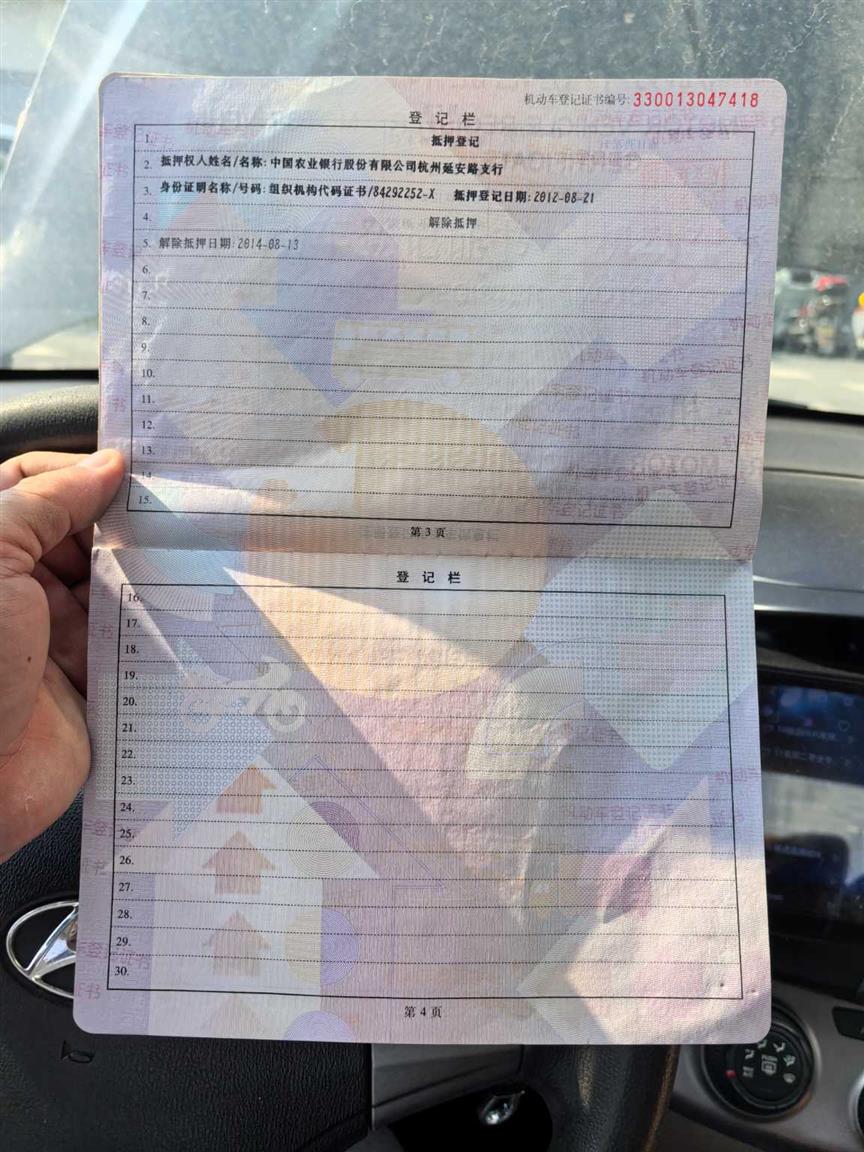 机动车登记证书编号:330013047418
登记栏
1. 抵押登记
2. 抵押权人姓名/名称:中国农业银行股份有限公司杭州延安路支行
3. 身份证明名称/号码:组织机构代码证书/84292252-X 抵押登记日期:2012-08-21
4. 解除抵押
5. 解除抵押日期:2014-08-13
6.
7.
8.
9.
10.
11.
12.
13.
14.
15.
第3页
登记栏
16.
17.
18.
19.
20.
21.
22.
23.
24.
25.
26.
27.
28.
29.
30.
第4页